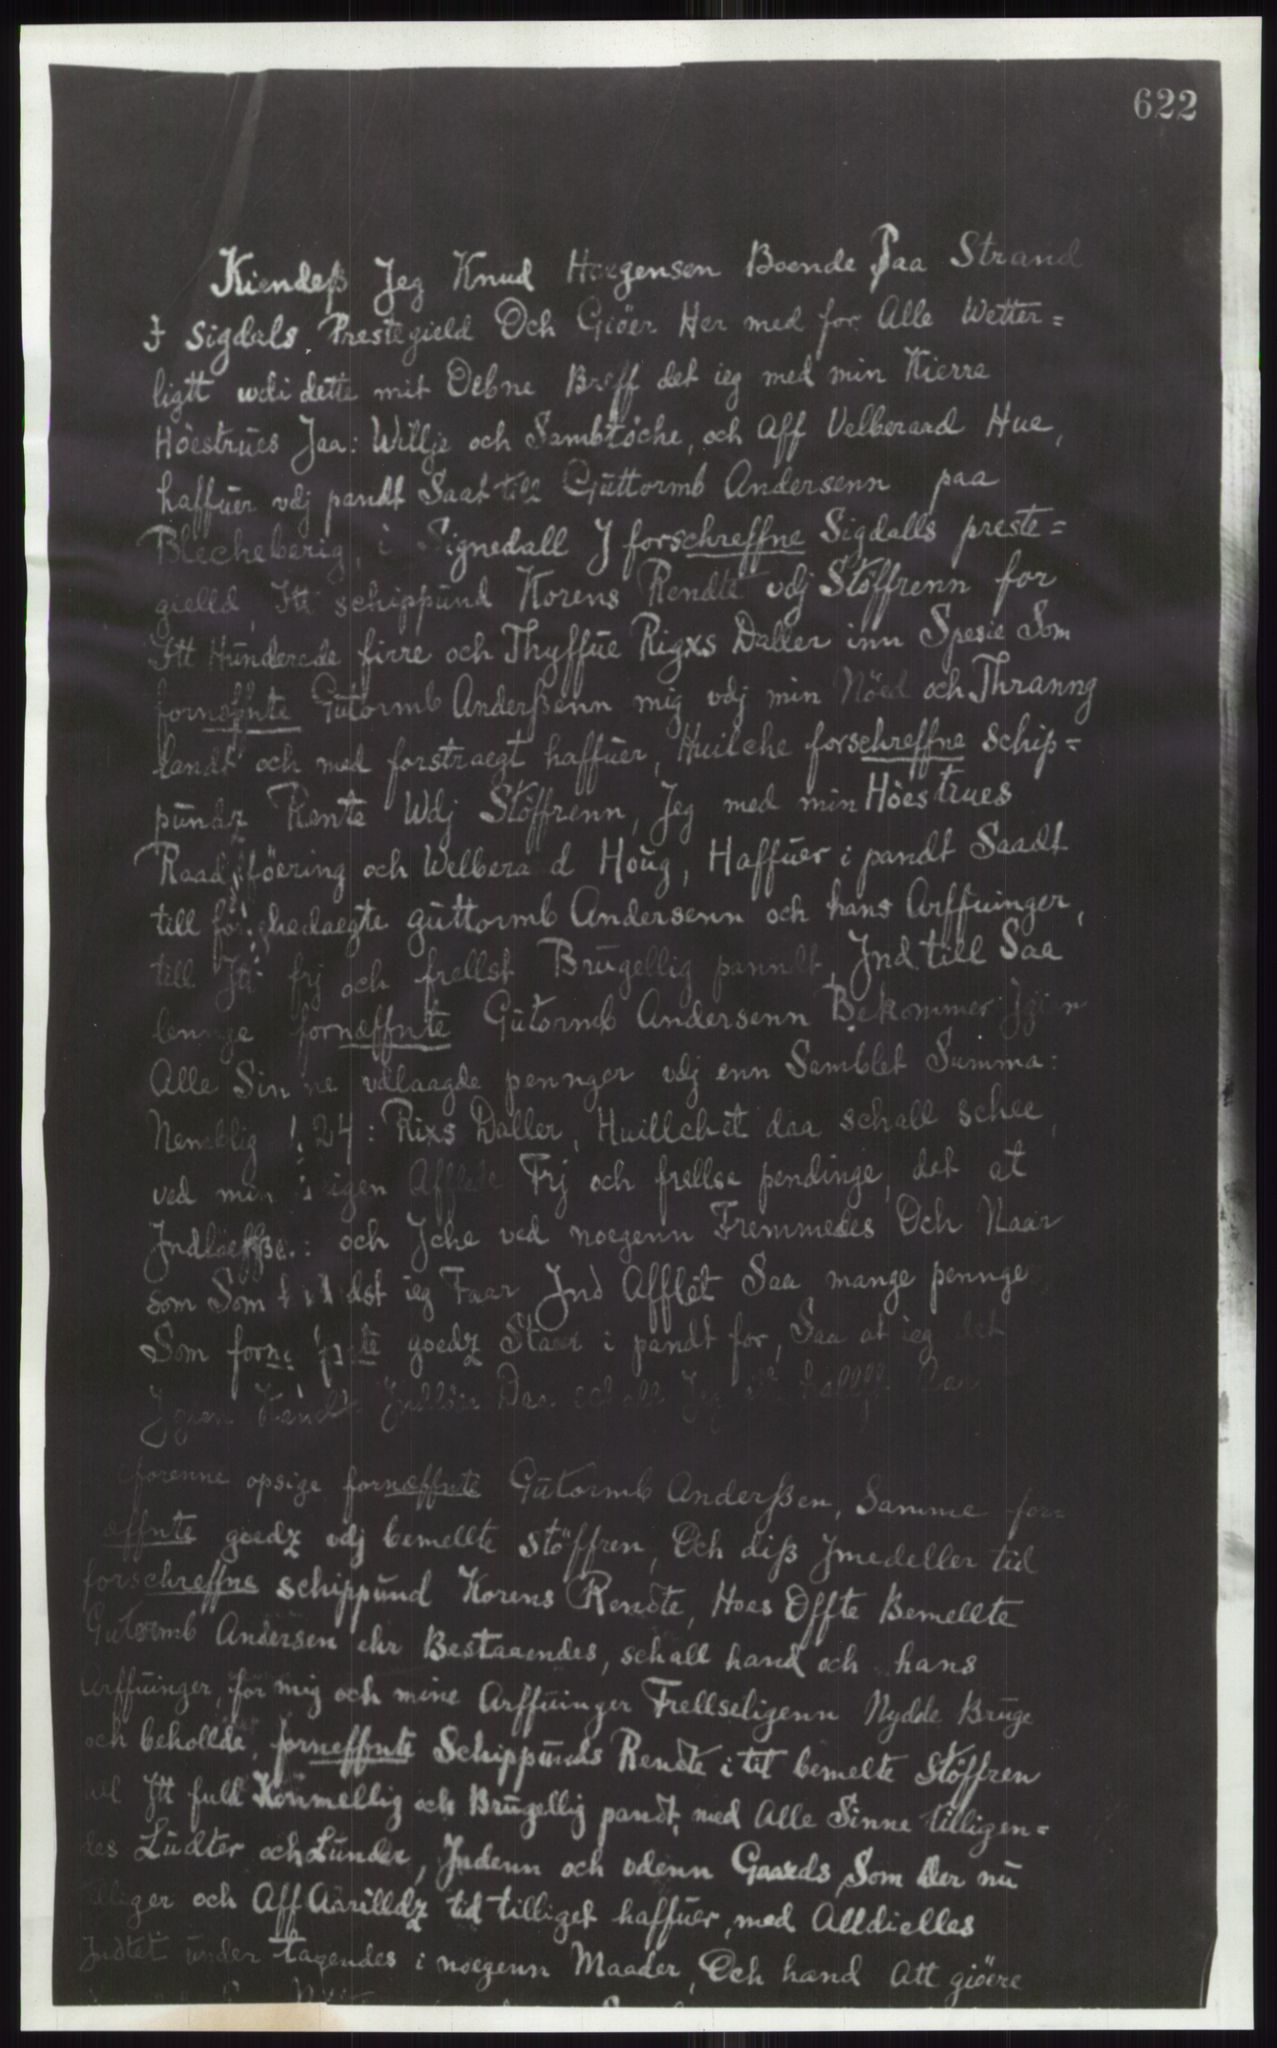 622
Kiendeß Jeg Knud Hoegensen Boende Paa Strand
I Sigdals Prestegield Och Giöer Her med for Alle Wetter=
ligtt wdi dette mit Oebne Breff det ieg med min Kierre
Höestrues Jaa: Willje och Sambtöche, och Aff Velberaad Hue,
haffuer vdj pandt Saat till Guttormb Andersenn paa
Blecheberig, i Signedall J forschreffne Sigdalls preste=
gielld, Itt schippund Korens Rendte vdj Stöffrenn for
Itt Hunderede firre och Thyffue Rigxs Daller inn Spesie Som
fornæffnte Gutormb Anderßenn mig vdj min Nöed och Thranng
landt och med forstraegt haffuer, Huilche forschreffne schip=
pundz Rente Wdj Stöffrenn, Jeg med min Höestrues
Raadföering och Welberaad Houg, Haffuer i pandt Saadt
till guttormb Andersenn och hans Arffuinger,
till Itt frj och frellst Brugellig panndt, Jnd till Saa
lennge fornæffnte Gutormb Andersenn Bekommer Jgien
Alle Sinne vdlaagde pennger vdj enn Samblet Summa:
Nemblig 124: Rixs Daller, Huillchit daa schall schee,
ved min eigen Afflede Frj och frellse pendinge, det at
Jndlöeße: och Jche ved noegenn Fremmedes Och Naar
som Som heldst ieg Faar Jnd Afflet Saa mange pennge
Som fornæffnte goedz Staar i pandt for, Saa at ieg det
Jgien Daa schall Jeg
forenne opsige fornæffnte Gutormb Anderßen, Samme for=
æffnte goedz vdj bemellte stöffren, Och diß Jmedeller tid
forschreffne schippund Korens Rendte, Hoes Offte Bemellte
Gutormb Andersen ehr Bestaaendes, schall hand och hans
Arffuinger, for mig och mine Arffuinger Frellseligenn Nydde Bruge
och behollde, forneffnte Schippunds Rendte i tit bemelte Stöffren
till Itt fuld Konmellig och Brugellig pandt, med Alle Sinne tilligen=
des Ludter och Lunder, Jndenn och vdenn Gaards, Som der nu
tilliger och Aff Aarilldz tid tilliget haffuer, med Alldielles
Jndtet under tagendes i noegenn Maader, Och hand Att giöere